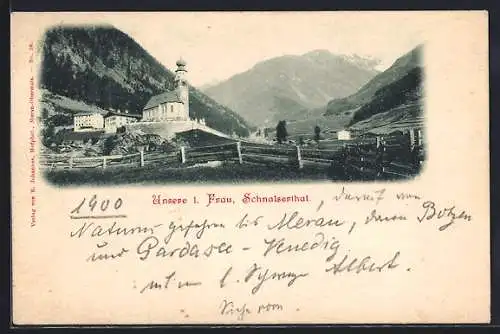 Verlag von B. Johannes, Hofphot., Meran-Obermais. — No. 58.
Unsere l. Frau, Schnalserthal.
1900 darauf von
Naturns gefahren bis Meran, dann Botzen
und Gardasee - Venedig
mit l. Albert.
Siehe vorn